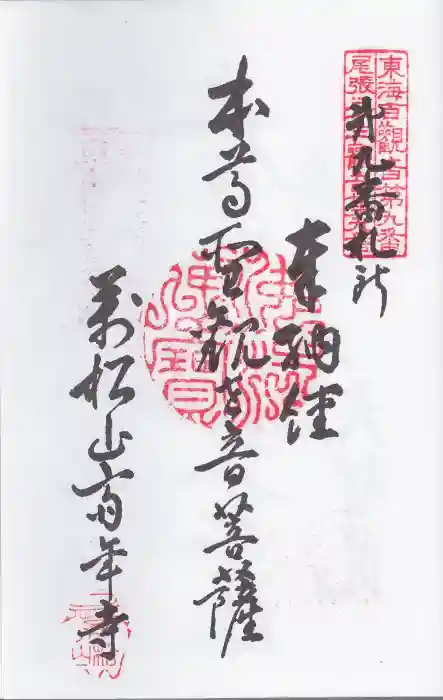 東海百觀音第九番
第九番札所
奉納経
本尊聖観世音菩薩
萬松山斉年寺